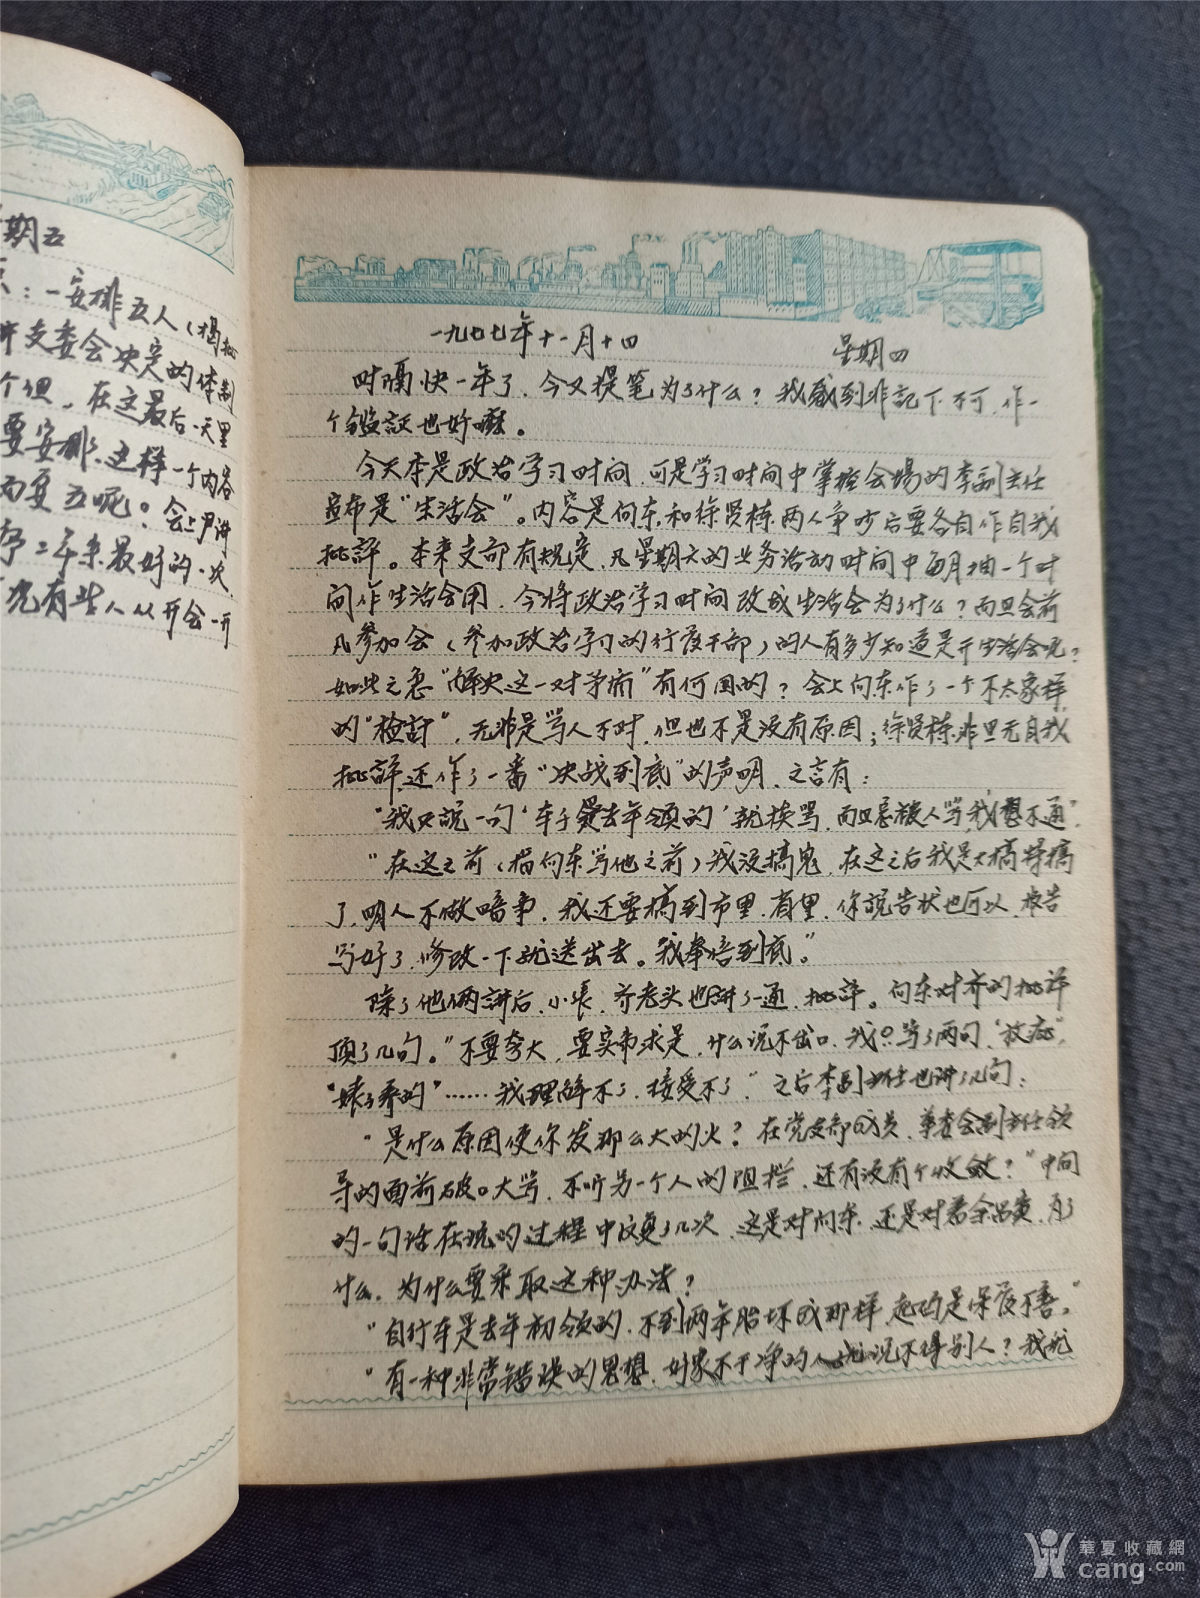 期五
：一安排五人（揭批
支委会决定的体制
个组，在这最后一天里
要安排这样一个内容
而要五呢？会上尹讲
二年来最好的一次
况有些人从开会一开
一九七七年十一月十四
星期四
时隔快一年了，今又提笔为了什么？我感到非記下不可，作一
个鑑証也好嘛。
今天本是政治学习时间，可是学习时间中掌握会場的李副主任
宣布是“生活会”。内容是向东和徐贤栋两人争吵后要各自作自我
批評。本来支部有规定，凡星期六的业务活动时间中每月抽一个时
间作生活会用，今将政治学习时间改成生活会为了什么？而且会前
凡参加会（参加政治学习的行政干部）的人有多少知道是开生活会呢？
如此之急“解决这一对矛盾”有何目的？会上向东作了一个不太象样
的“检討”，无非是骂人不对，但也不是没有原因；徐贤栋非但无自我
批評还作了一番“决战到底”的声明，之言有：
“我只說一句‘车子是去年领的’就挨骂，而且总被人骂，我想不通”
“在这之前（指向东骂他之前）我没搞鬼，在这之后我是大搞特搞
了，明人不做暗事，我还要搞到市里、省里，你說告状也可以，报告
写好了，修改一下就送出去。我奉陪到底。”
除了他俩講后，小張、齐老头也讲了一通，批評。向东对齐的批評
顶了几句。“不要夸大，要实事求是，什么说不出口，我只骂了两句，‘放屁’，
“婊子养的”……我理解不了，接受不了”之后李副主任也讲了几句：
“是什么原因使你发那么大的火？在党支部成员、革委会副主任领
导的面前破口大骂，不听另一个人的阻拦，还有没有个收敛？”中间
的一句话在说的过程中反复了几次，这是对向东，还是对着余思爽，为了
什么，为什么要采取这种办法？
“自行车是去年初领的，不到两年胎坏成那样，起码是保养不善。”
“有一种非常错误的思想，好象不干净的人就说不得别人？我就
華夏收藏網
cang.com